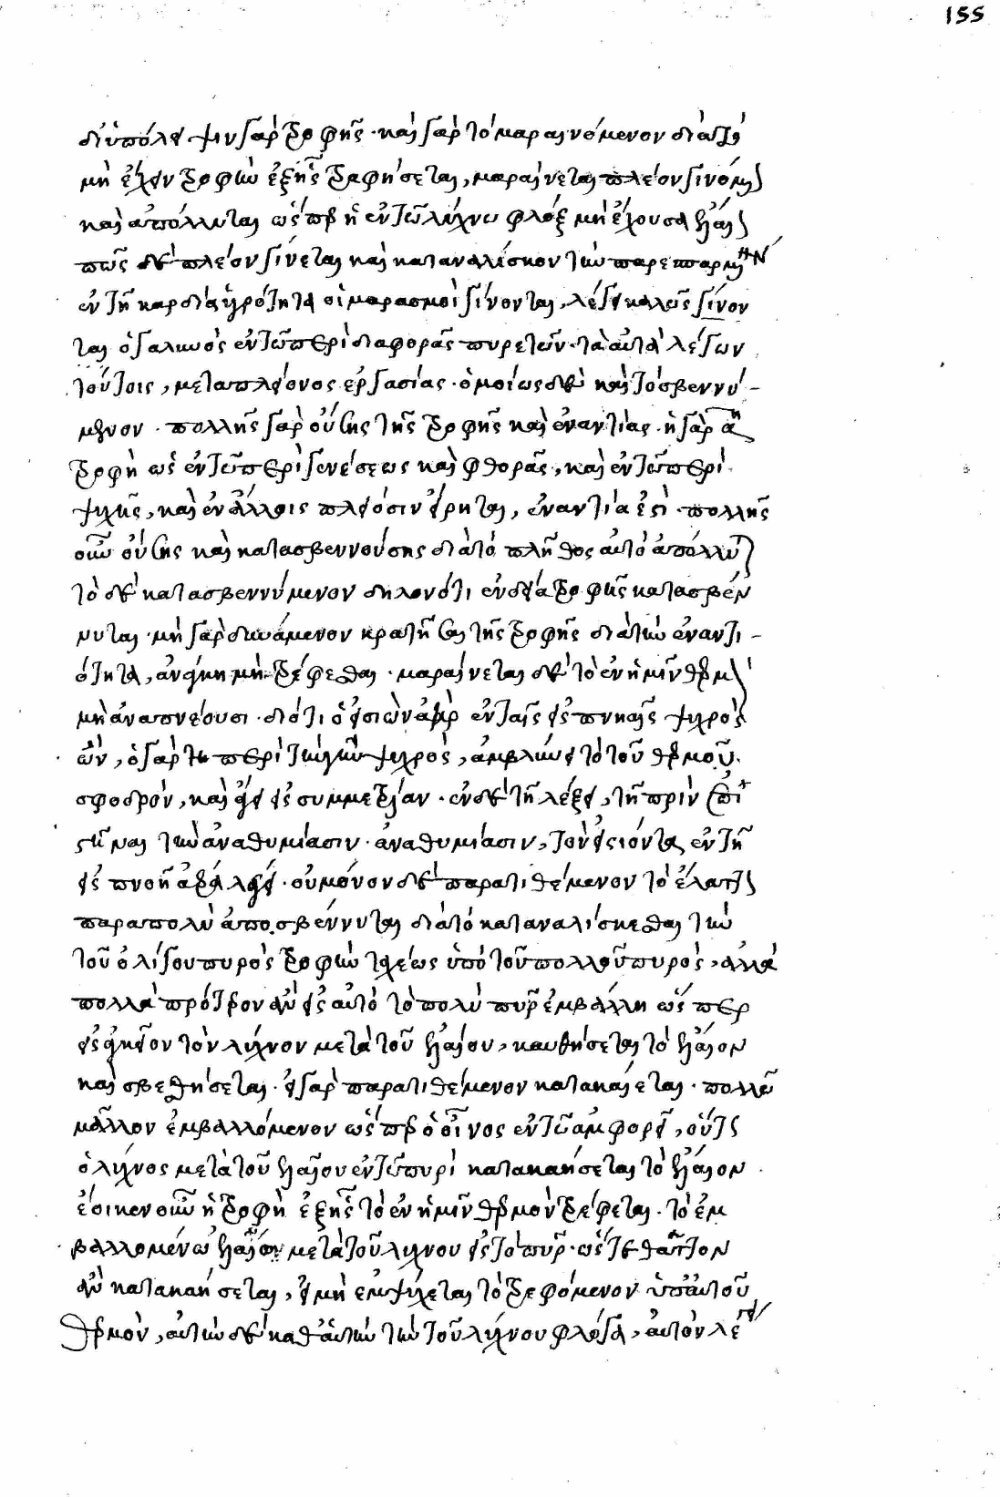 155
δι' ὑπόλειψιν γὰρ τροφῆς · καὶ γὰρ τὸ μαραινόμενον διὰ τὸ
μὴ ἔχειν τροφὴν ἐξ ἧς τραφήσεται, μαραίνεται πλεῖον γινόμ
καὶ ἀπόλλυται ὥσπερ ἡ ἐν τῷ λύχνῳ φλὸξ μὴ ἔχουσα ἔλαι
πῶς δὲ πλεῖον γίνεται καὶ καταναλίσκον τὴν
ἐν τῇ καρδίᾳ ὑγρότητα οἱ μαρασμοὶ γίνονται, λέγει καλῶς γίνον
ται ὁ γαληνὸς ἐν τῷ περὶ διαφορᾶς πυρετῶν · τὰ αὐτὰ λέγων
τούτοις, μετὰ πλείονος ἐργασίας · ὁμοίως δὲ καὶ τὸ σβεννύ-
μενον · πολλῆς γὰρ οὔσης τῆς τροφῆς καὶ ἐναντίας · ἡ γὰρ
τροφὴ ὡς ἐν τῷ περὶ γενέσεως καὶ φθορᾶς, καὶ ἐν τῷ περὶ
ψυχῆς, καὶ ἐν ἄλλοις πλείοσιν εἴρηται, ἐναντία ἐστὶ · πολλῆς
οὖν οὔσης καὶ κατασβεννούσης διὰ τὸ πλῆθος αὐτὸ ἀπόλλυ
τὸ δὲ κατασβεννύμενον δηλονότι ἐνδείᾳ τροφῆς κατασβέν
νυται · μὴ γὰρ δυνάμενον κρατῆσαι τῆς τροφῆς διὰ τὴν ἐναντι-
ότητα, ἀνάγκη μὴ τρέφεσθαι · μαραίνεται δὲ τὸ ἐν ἡμῖν θερμ
μὴ ἀναπνέουσι · διότι ὁ εἰσιὼν ἀὴρ ἐν ταῖς εἰσπνοαῖς ψυχρὸς
ὤν, ὁ γὰρ περὶ τὴν γῆν ψυχρός, ἀμβλύνει τὸ τοῦ θερμοῦ
σφοδρόν, καὶ ἄγει εἰς συμμετρίαν · ἐν δὲ τῇ λέξει, τῇ πρὶν ἐπι
στῆναι τὴν ἀναθυμίασιν · ἀναθυμίασιν, τὸν εἰσιόντα ἐν τῇ
εἰσπνοῇ ἀέρα λέγει · οὐ μόνον δὲ παρατιθέμενον τὸ ἔλαττ
παραπολὺ ἀποσβέννυται διὰ τὸ καταναλίσκεσθαι τὴν
τοῦ ὀλίγου πυρὸς τροφὴν ταχέως ὑπὸ τοῦ πολλοῦ πυρός, ἀλλὰ
πολλὰ πρότερον ἂν εἰς αὐτὸ τὸ πολὺ πῦρ ἐμβάλλῃ ὥσπερ
εἰς ἐκεῖνον τὸν λύχνον μετὰ τοῦ ἐλαίου, καυθήσεται τὸ ἔλαιον
καὶ σβεσθήσεται · εἰ γὰρ παρατιθέμενον κατακαίεται · πολλῷ
μᾶλλον ἐμβαλλόμενον ὥσπερ ὁ οἶνος ἐν τῷ ἀμφορεῖ, οὕτω
ὁ λύχνος μετὰ τοῦ ἐλαίου ἐν τῷ πυρὶ κατακαήσεται τὸ ἔλαιον
ἔοικεν οὖν ἡ τροφὴ ἐξ ἧς τὸ ἐν ἡμῖν θερμὸν τρέφεται · τὸ ἐμ
βαλλομένῳ ἐλαίῳ μετὰ τοῦ λύχνου εἰς τὸ πῦρ · ὥστε θᾶττον
ἂν κατακαήσεται, εἰ μὴ ἐμψύχεται τὸ τρεφόμενον ὑπ' αὐτοῦ
θερμόν, αὐτὴν δὲ καθ' αὑτὴν τὴν τοῦ λύχνου φλόγα, αὐτὸν λέγει